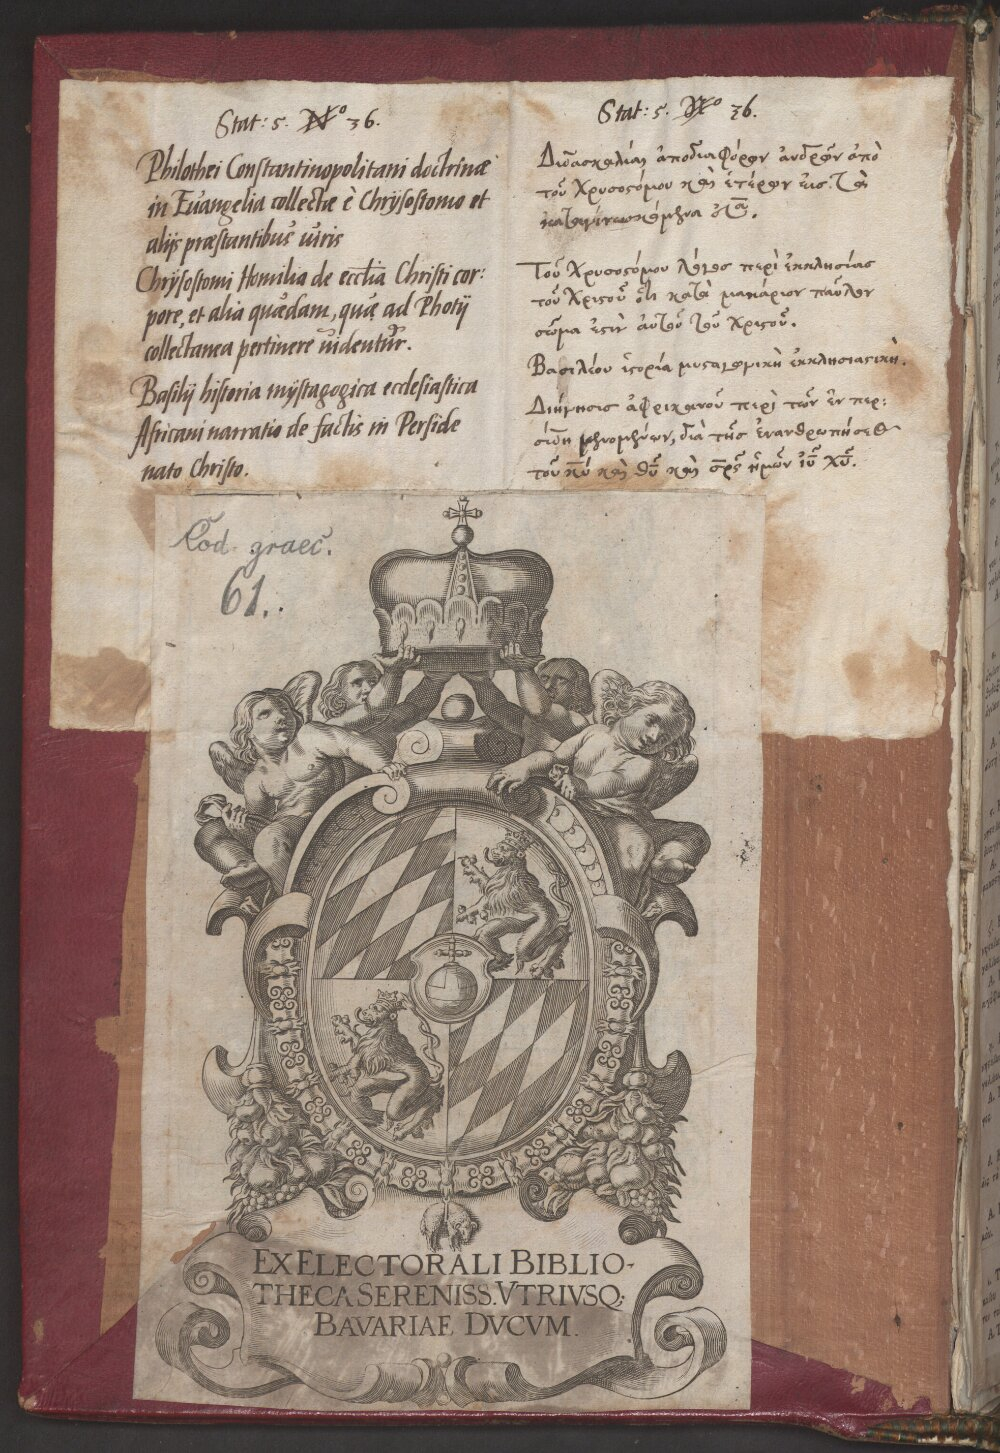 Stat: 5. No 36.
Philothei Constantinopolitani doctrinæ
in Euangelia collectæ è Chrysostomo et
alijs præstantibus uiris
Chrysostomi Homilia de eccłia Christi cor:
pore, et alia quædam, quæ ad Photij
collectanea pertinere uidentur.
Basilij historia mystagogica ecclesiastica
Africani narratio de factis in Perside
nato Christo.
Stat: 5. No 36.
Διδασκαλίαι ἀπὸ διαφόρων ἀνδρῶν ἀπὸ
τοῦ Χρυσοστόμου καὶ ἑτέρων εἰσ. τὰ
Τοῦ Χρυσοστόμου λόγος περὶ ἐκκλησίας
τοῦ Χριστοῦ ὅτι κατὰ μακάριον παῦλον
σῶμα ἐστὶν αὐτοῦ τοῦ Χριστοῦ.
Βασιλείου ἱστορία μυσταγωγικὴ ἐκκλησιαστικὴ.
Διήγησις ἀφρικανοῦ περὶ τῶν ἐν περ:
σίδη γενομένων, διὰ τῆς ἐνανθρωπήσεως
τοῦ κ̅υ̅ καὶ θ̅υ̅ καὶ σ̅ρ̅ς ἡμῶν ἰ̅υ̅ χ̅υ̅.
Cod. graec.
61.
EX ELECTORALI BIBLIO-
THECA SERENISS. VTRIVSQ;
BAVARIAE DVCVM.